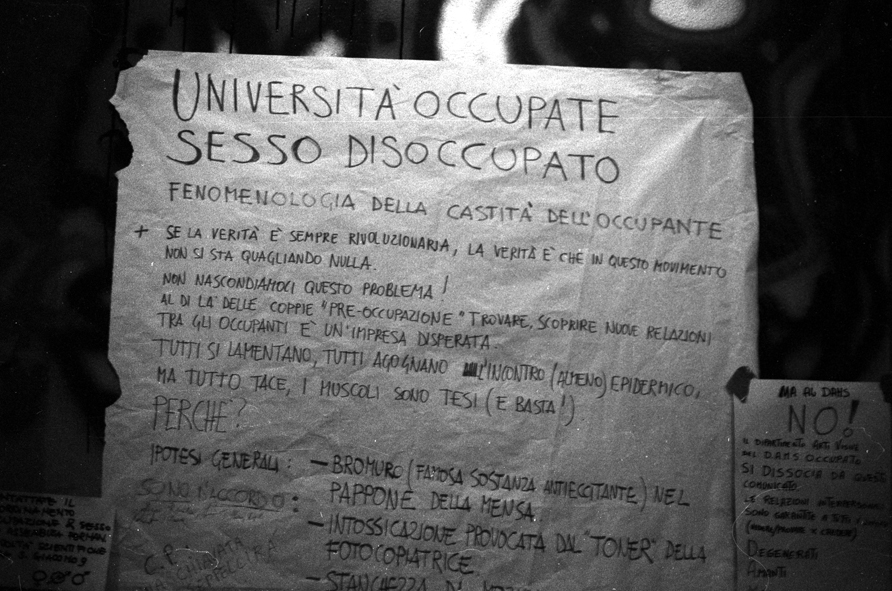 UNIVERSITÀ OCCUPATE
SESSO DISOCCUPATO
FENOMENOLOGIA DELLA CASTITÀ DELL'OCCUPANTE
+ SE LA VERITÀ È SEMPRE RIVOLUZIONARIA, LA VERITÀ È CHE IN QUESTO MOVIMENTO
NON SI STA QUAGLIANDO NULLA.
NON NASCONDIAMOCI QUESTO PROBLEMA!
AL DI LÀ DELLE COPPIE "PRE-OCCUPAZIONE" TROVARE, SCOPRIRE NUOVE RELAZIONI
TRA GLI OCCUPANTI È UN'IMPRESA DISPERATA.
TUTTI SI LAMENTANO, TUTTI AGOGNANO L'INCONTRO (ALMENO) EPIDERMICO,
MA TUTTO TACE, I MUSCOLI SONO TESI (E BASTA!)
PERCHÈ?
IPOTESI GENERALI: - BROMURO (FAMOSA SOSTANZA ANTIECCITANTE) NEL
PAPPONE DELLA MENSA
- INTOSSICAZIONE PROVOCATA DAL "TONER" DELLA
FOTOCOPIATRICE.
- STANCHEZZA DI
SONO D'ACCORDO:
C.P.
MA AL DAMS
NO!
IL DIPARTIMENTO ARTI VISIVE
DEL DAMS OCCUPATO
SI DISSOCIA DA QUESTO
COMUNICATO.
LE RELAZIONI
SONO GARANTITE A TUTTI
DEGENERATI
AMANTI
IL